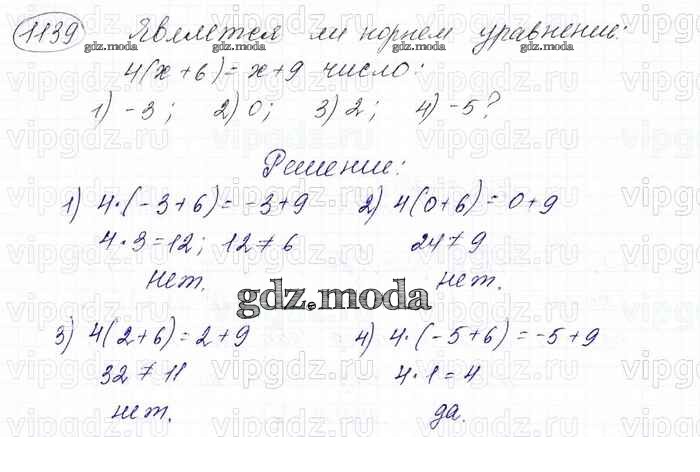 1139 Является ли корнем уравнения:
4(x+6)=x+9 число:
1) -3; 2) 0; 3) 2; 4) -5?
Решение:
1) 4·(-3+6)=-3+9 2) 4(0+6)=0+9
4·3=12; 12≠6 24≠9
нет. нет.
gdz.moda
3) 4(2+6)=2+9 4) 4·(-5+6)=-5+9
32≠11 4·1=4
нет. да.